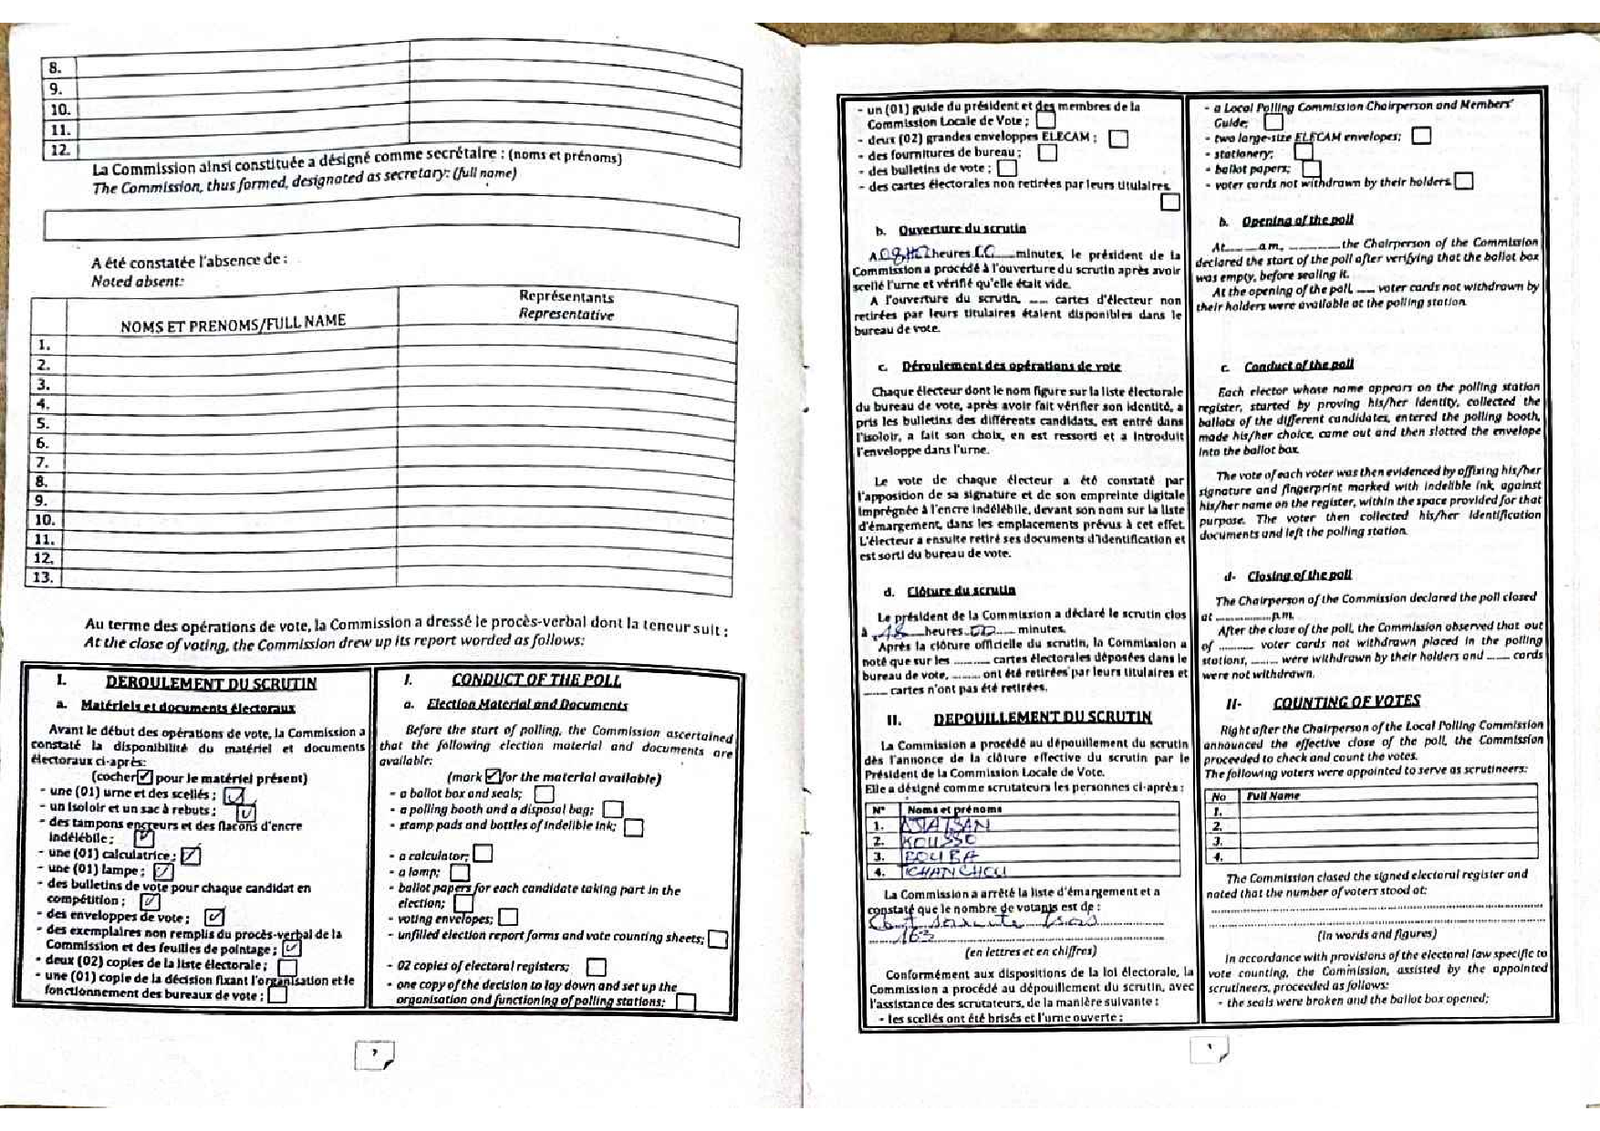 8.
9.
10.
11.
12.
La Commission ainsi constituée a désigné comme secrétaire : (noms et prénoms)
The Commission, thus formed, designated as secretary: (full name)
A été constatée l'absence de :
Noted absent:
NOMS ET PRENOMS/FULL NAME
Représentants
Representative
1.
2.
3.
4.
5.
6.
7.
8.
9.
10.
11.
12.
13.
Au terme des opérations de vote, la Commission a dressé le procès-verbal dont la teneur suit :
At the close of voting, the Commission drew up its report worded as follows:
I. DEROULEMENT DU SCRUTIN
a. Matériels et documents électoraux
Avant le début des opérations de vote, la Commission a
constaté la disponibilité du matériel et documents
électoraux ci-après:
(cocher ☑ pour le matériel présent)
- une (01) urne et des scellés ; ☑
- un isoloir et un sac à rebuts ; ☑
- des tampons encreurs et des flacons d'encre
indélébile ; ☑
- une (01) calculatrice ; ☑
- une (01) lampe ; ☑
- des bulletins de vote pour chaque candidat en
compétition ; ☑
- des enveloppes de vote ; ☑
- des exemplaires non remplis du procès-verbal de la
Commission et des feuilles de pointage ; ☑
- deux (02) copies de la liste électorale ; ☐
- une (01) copie de la décision fixant l'organisation et le
fonctionnement des bureaux de vote ; ☐
I. CONDUCT OF THE POLL
a. Election Material and Documents
Before the start of polling, the Commission ascertained
that the following election material and documents are
available:
(mark ☑ for the material available)
- a ballot box and seals; ☐
- a polling booth and a disposal bag; ☐
- stamp pads and bottles of indelible ink; ☐
- a calculator; ☐
- a lamp; ☐
- ballot papers for each candidate taking part in the
election; ☐
- voting envelopes; ☐
- unfilled election report forms and vote counting sheets; ☐
- 02 copies of electoral registers; ☐
- one copy of the decision to lay down and set up the
organisation and functioning of polling stations; ☐
- un (01) guide du président et des membres de la
Commission Locale de Vote ; ☐
- deux (02) grandes enveloppes ELECAM ; ☐
- des fournitures de bureau ; ☐
- des bulletins de vote ; ☐
- des cartes électorales non retirées par leurs titulaires
☐
b. Ouverture du scrutin
A heures minutes, le président de la
Commission a procédé à l'ouverture du scrutin après avoir
scellé l'urne et vérifié qu'elle était vide.
A l'ouverture du scrutin, ...... cartes d'électeur non
retirées par leurs titulaires étaient disponibles dans le
bureau de vote.
c. Déroulement des opérations de vote
Chaque électeur dont le nom figure sur la liste électorale
du bureau de vote, après avoir fait vérifier son identité, a
pris les bulletins des différents candidats, est entré dans
l'isoloir, a fait son choix, en est ressorti et a introduit
l'enveloppe dans l'urne.
Le vote de chaque électeur a été constaté par
l'apposition de sa signature et de son empreinte digitale
imprégnée à l'encre indélébile, devant son nom sur la liste
d'émargement, dans les emplacements prévus à cet effet.
L'électeur a ensuite retiré ses documents d'identification et
est sorti du bureau de vote.
d. Clôture du scrutin
Le président de la Commission a déclaré le scrutin clos
à 18 heures 00 minutes.
Après la clôture officielle du scrutin, la Commission a
noté que sur les .......... cartes électorales déposées dans le
bureau de vote, ........ ont été retirées par leurs titulaires et
....... cartes n'ont pas été retirées.
II. DEPOUILLEMENT DU SCRUTIN
La Commission a procédé au dépouillement du scrutin
dès l'annonce de la clôture effective du scrutin par le
Président de la Commission Locale de Vote.
Elle a désigné comme scrutateurs les personnes ci-après :
N° Noms et prénoms
1.
2. KOUSSO
3. BOUBA
4. TCHANCHOU
La Commission a arrêté la liste d'émargement et a
constaté que le nombre de votants est de :
Cent soixante trois
163
(en lettres et en chiffres)
Conformément aux dispositions de la loi électorale, la
Commission a procédé au dépouillement du scrutin, avec
l'assistance des scrutateurs, de la manière suivante :
- les scellés ont été brisés et l'urne ouverte ;
- a Local Polling Commission Chairperson and Members'
Guide; ☐
- two large-size ELECAM envelopes; ☐
- stationery; ☐
- ballot papers; ☐
- voter cards not withdrawn by their holders ☐
b. Opening of the poll
At........am, ............ the Chairperson of the Commission
declared the start of the poll after verifying that the ballot box
was empty, before sealing it.
At the opening of the poll, ...... voter cards not withdrawn by
their holders were available at the polling station.
c. Conduct of the poll
Each elector whose name appears on the polling station
register, started by proving his/her identity, collected the
ballots of the different candidates, entered the polling booth,
made his/her choice, came out and then slotted the envelope
into the ballot box.
The vote of each voter was then evidenced by affixing his/her
signature and fingerprint marked with indelible ink, against
his/her name on the register, within the space provided for that
purpose. The voter then collected his/her identification
documents and left the polling station.
d- Closing of the poll
The Chairperson of the Commission declared the poll closed
at ..................p.m.
After the close of the poll, the Commission observed that out
of .......... voter cards not withdrawn placed in the polling
stations, ........ were withdrawn by their holders and ....... cards
were not withdrawn.
II- COUNTING OF VOTES
Right after the Chairperson of the Local Polling Commission
announced the effective close of the poll, the Commission
proceeded to check and count the votes.
The following voters were appointed to serve as scrutineers:
No Full Name
1.
2.
3.
4.
The Commission closed the signed electoral register and
noted that the number of voters stood at:
(in words and figures)
In accordance with provisions of the electoral law specific to
vote counting, the Commission, assisted by the appointed
scrutineers, proceeded as follows:
- the seals were broken and the ballot box opened;